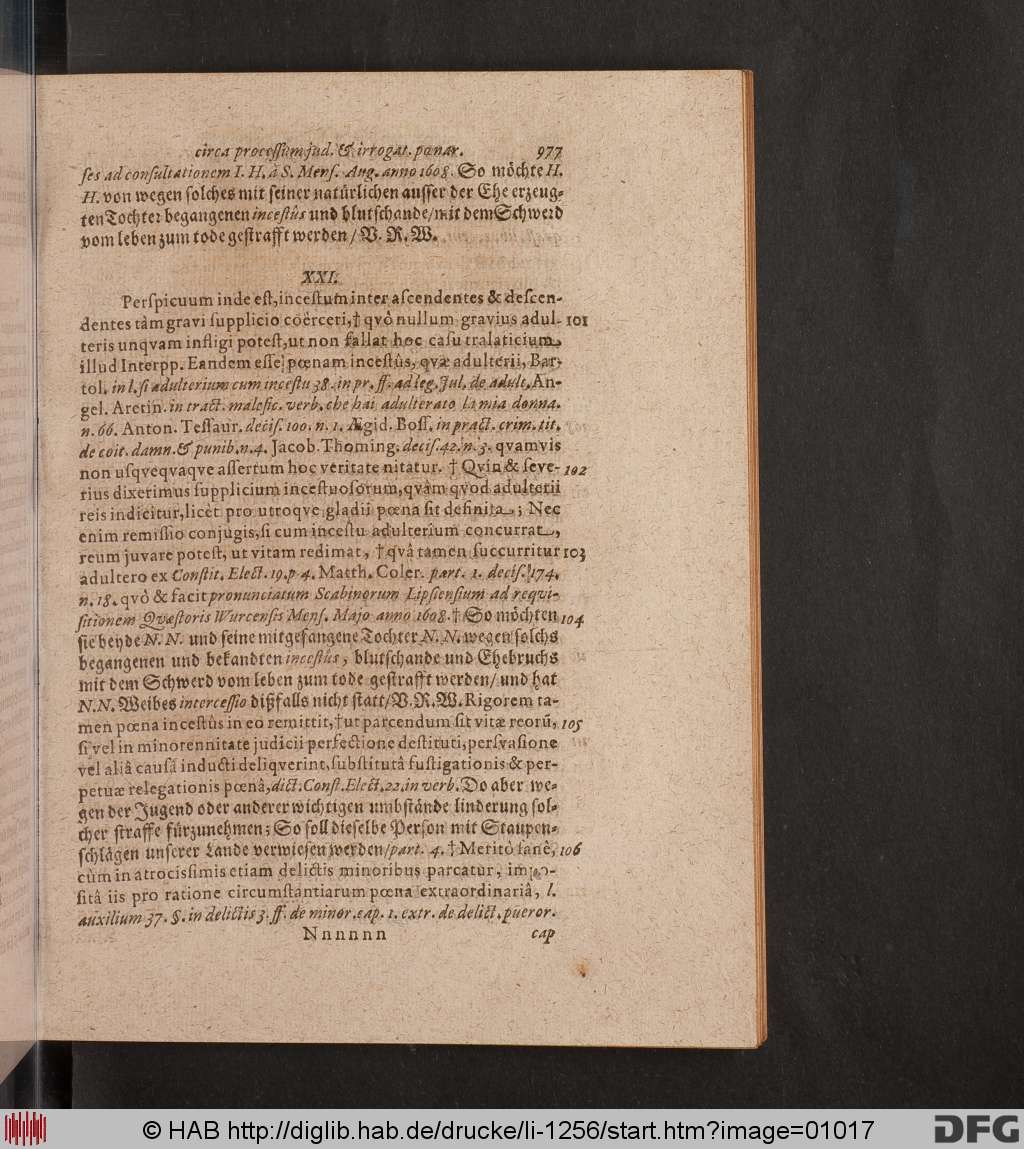 circa processum jud. & irrogat. pœnar. 977
ses ad consultationem I. H. à S. Mens. Aug. anno 1608. So möchte H.
H. von wegen solches mit seiner natürlichen ausser der Ehe erzeug-
ten Tochter begangenen incestûs und blutschande/mit dem Schwerd
vom leben zum tode gestrafft werden / V. R. W.
XXI.
Perspicuum inde est, incestum inter ascendentes & descen-
dentes tàm gravi supplicio coërceri, † qvò nullum gravius adul- 101
teris unqvam infligi potest, ut non fallat hoc casu tralaticium
illud Interpp. Eandem esse pœnam incestûs, qvæ adulterii, Bar-
tol. in l. si adulterium cum incestu 38. in pr. ff. ad leg. Jul. de adult. An-
gel. Aretin. in tract. malefic. verb. che hai adulterato la mia donna.
n. 66. Anton. Tessaur. decis. 100. n. 1. Ægid. Boss. in pract. crim. tit.
de coit. damn. & punib. n. 4. Jacob. Thoming. decis. 42. n. 3. qvamvis
non usqveqvaqve assertum hoc veritate nitatur. † Qvin & seve- 102
rius dixerimus supplicium incestuosorum, qvàm qvod adulterii
reis indicitur, licèt pro utroqve gladii pœna sit definita; Nec
enim remissio conjugis, si cum incestu adulterium concurrat,
reum juvare potest, ut vitam redimat, † qvâ tamen succurritur 103
adultero ex Constit. Elect. 19. p 4. Matth. Coler. part. 1. decis. 174.
n. 18. qvò & facit pronunciatum Scabinorum Lipsiensium ad reqvi-
sitionem Qvæstoris Wurcensis Mens. Majo anno 1608. † So möchten 104
sie beyde N. N. und seine mitgefangene Tochter N. N. wegen solchs
begangenen und bekandten incestûs, blutschande und Ehebruchs
mit dem Schwerd vom leben zum tode gestrafft werden/ und hat
N. N. Weibes intercessio dißfalls nicht statt/ V. R. W. Rigorem ta-
men pœna incestûs in eo remittit, † ut parcendum sit vitæ reorũ, 105
si vel in minorennitate judicii perfectione destituti, persvasione
vel aliâ causâ inducti deliqverint, substitutâ fustigationis & per-
petuæ relegationis pœnâ, dict. Const. Elect. 22. in verb. Do aber we-
gen der Jugend oder anderer wichtigen umbstände linderung sol-
cher straffe fürzunehmen; So soll dieselbe Person mit Staupen-
schlägen unserer Lande verwiesen werden/ part. 4. † Meritò sanè, 106
cùm in atrocissimis etiam delictis minoribus parcatur, impo-
sitâ iis pro ratione circumstantiarum pœna extraordinariâ, l.
auxilium 37. §. in delictis 3. ff. de minor. cap. 1. extr. de delict. pueror.
Nnnnnn cap
© HAB http://diglib.hab.de/drucke/li-1256/start.htm?image=01017
DFG